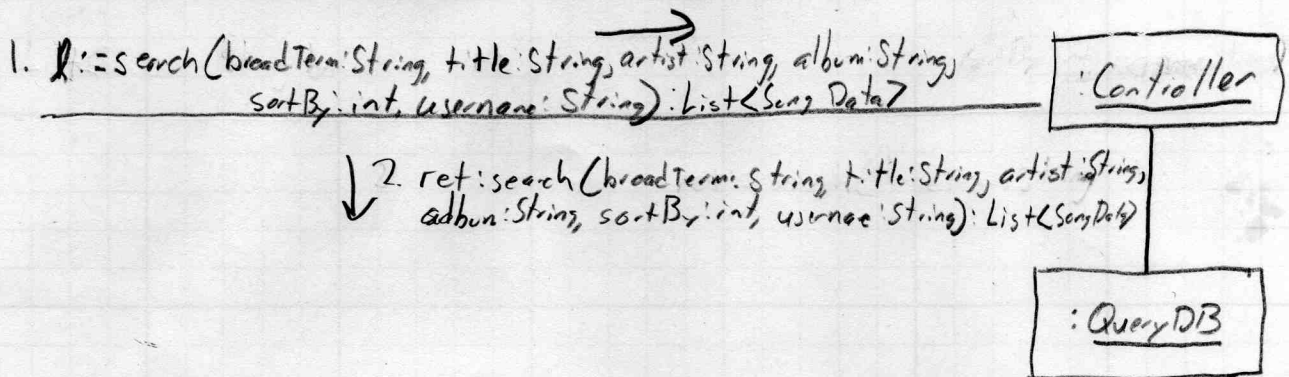 1. l:=search(broadTerm:String, title:String, artist:String, album:String,
sortBy:int, username:String):List<SongData>
:Controller
2. ret:search(broadTerm:String title:String, artist:String,
adbum:String, sortBy:int, usernae:String):List<SongData>
:QueryDB